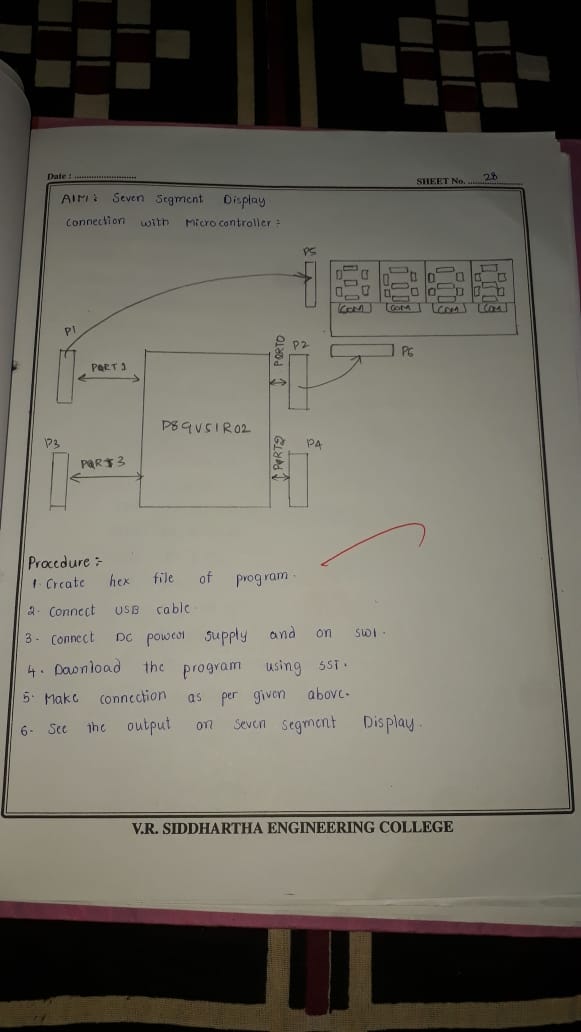 Date : ........................
SHEET No. ..28..
AIM : Seven Segment Display
Connection with Microcontroller :-
P5
COM COM COM COM
P1
PORT1
PORT0
P2
P6
P89V51R02
P3
PORT3
PORT2
P4
Procedure :-
1. Create hex file of program.
2. Connect USB cable.
3. Connect DC power supply and on SW1.
4. Download the program using SST.
5. Make connection as per given above.
6. See the output on Seven segment Display.
V.R. SIDDHARTHA ENGINEERING COLLEGE